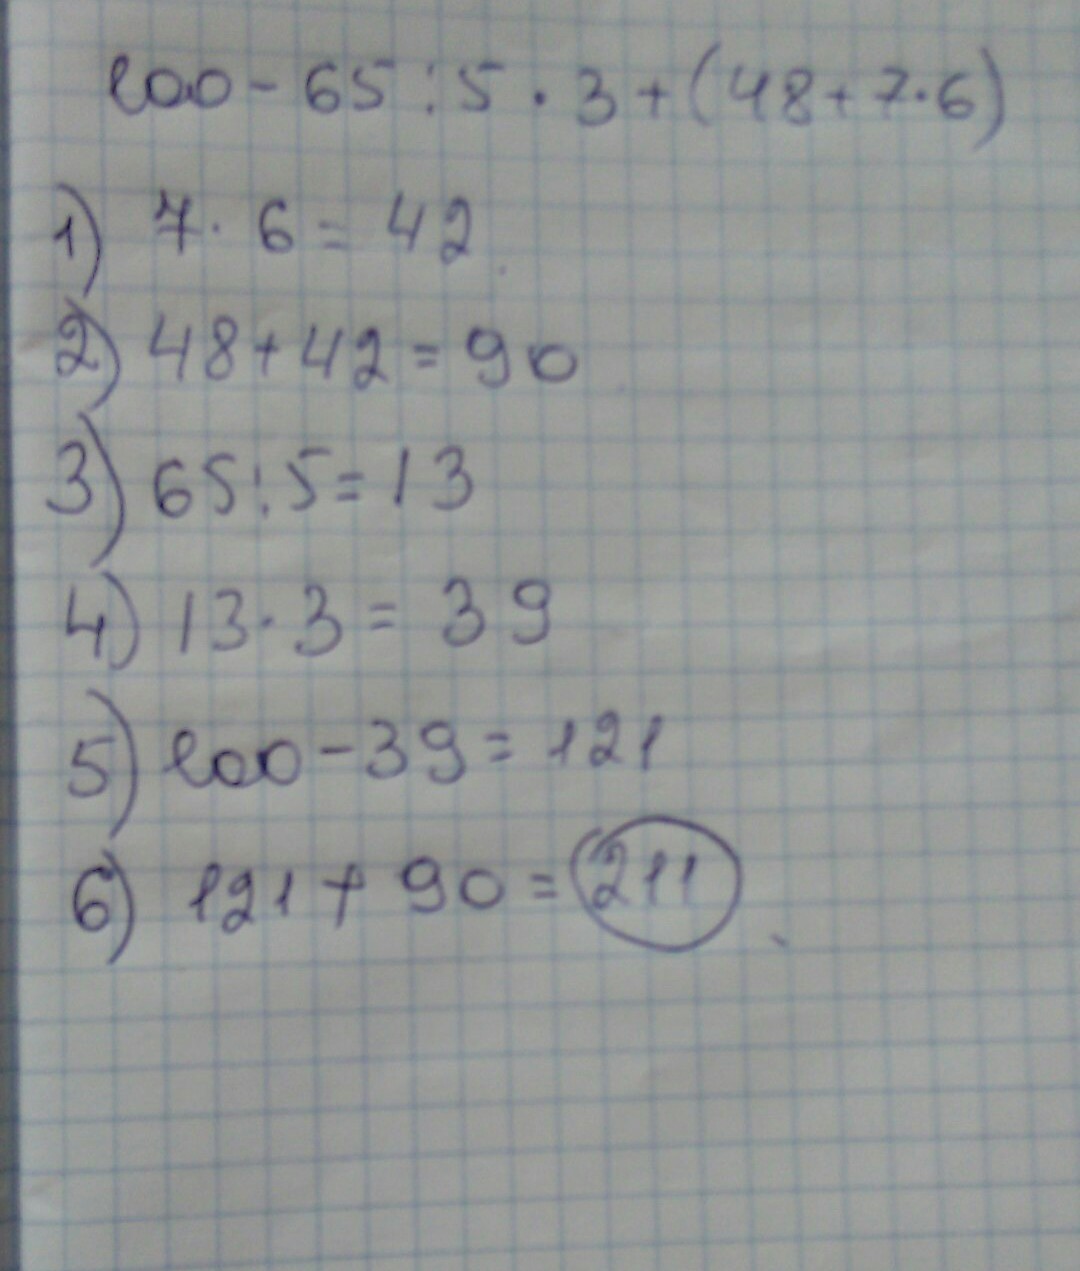 100-65:5·3+(48+7·6)
1) 7·6=42
2) 48+42=90
3) 65:5=13
4) 13·3=39
5) 100-39=121
6) 121+90=211